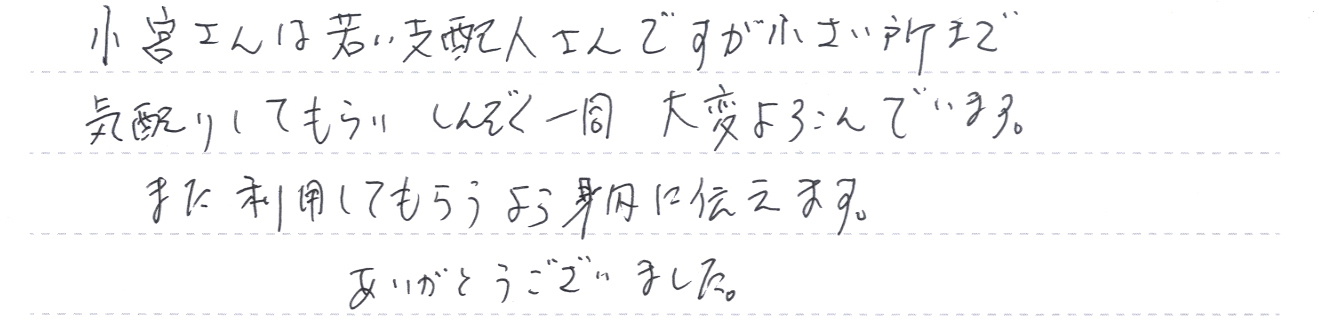 小宮さんは若い支配人さんですが小さい所まで
気配りしてもらい しんぞく一同 大変よろこんでいます。
また利用してもらうよう身内に伝えます。
ありがとうございました。